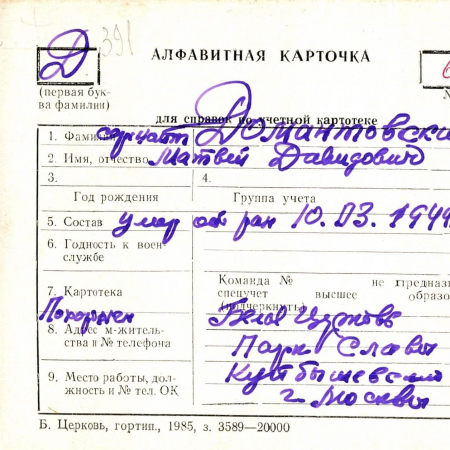 Д 391
АЛФАВИТНАЯ КАРТОЧКА
(первая бук-
ва фамилии)
для справок по учетной картотеке
1. Фамилия сержант Домантовски
2. Имя, отчество Матвей Давидович
3. 4.
Год рождения Группа учета
5. Состав умер от ран 10.03.1944
6. Годность к воен
службе
Команда № не предназ
7. Картотека спецучет высшее образо
(подчеркнуть)
Похоронен Белая Церковь
8. Адрес м-житель-
ства и № телефона Парк Славы
9. Место работы, дол-
жность и № тел. ОК Куйбышевский
г. Москвы
Б. Церковь, гортип., 1985, з. 3589—20000